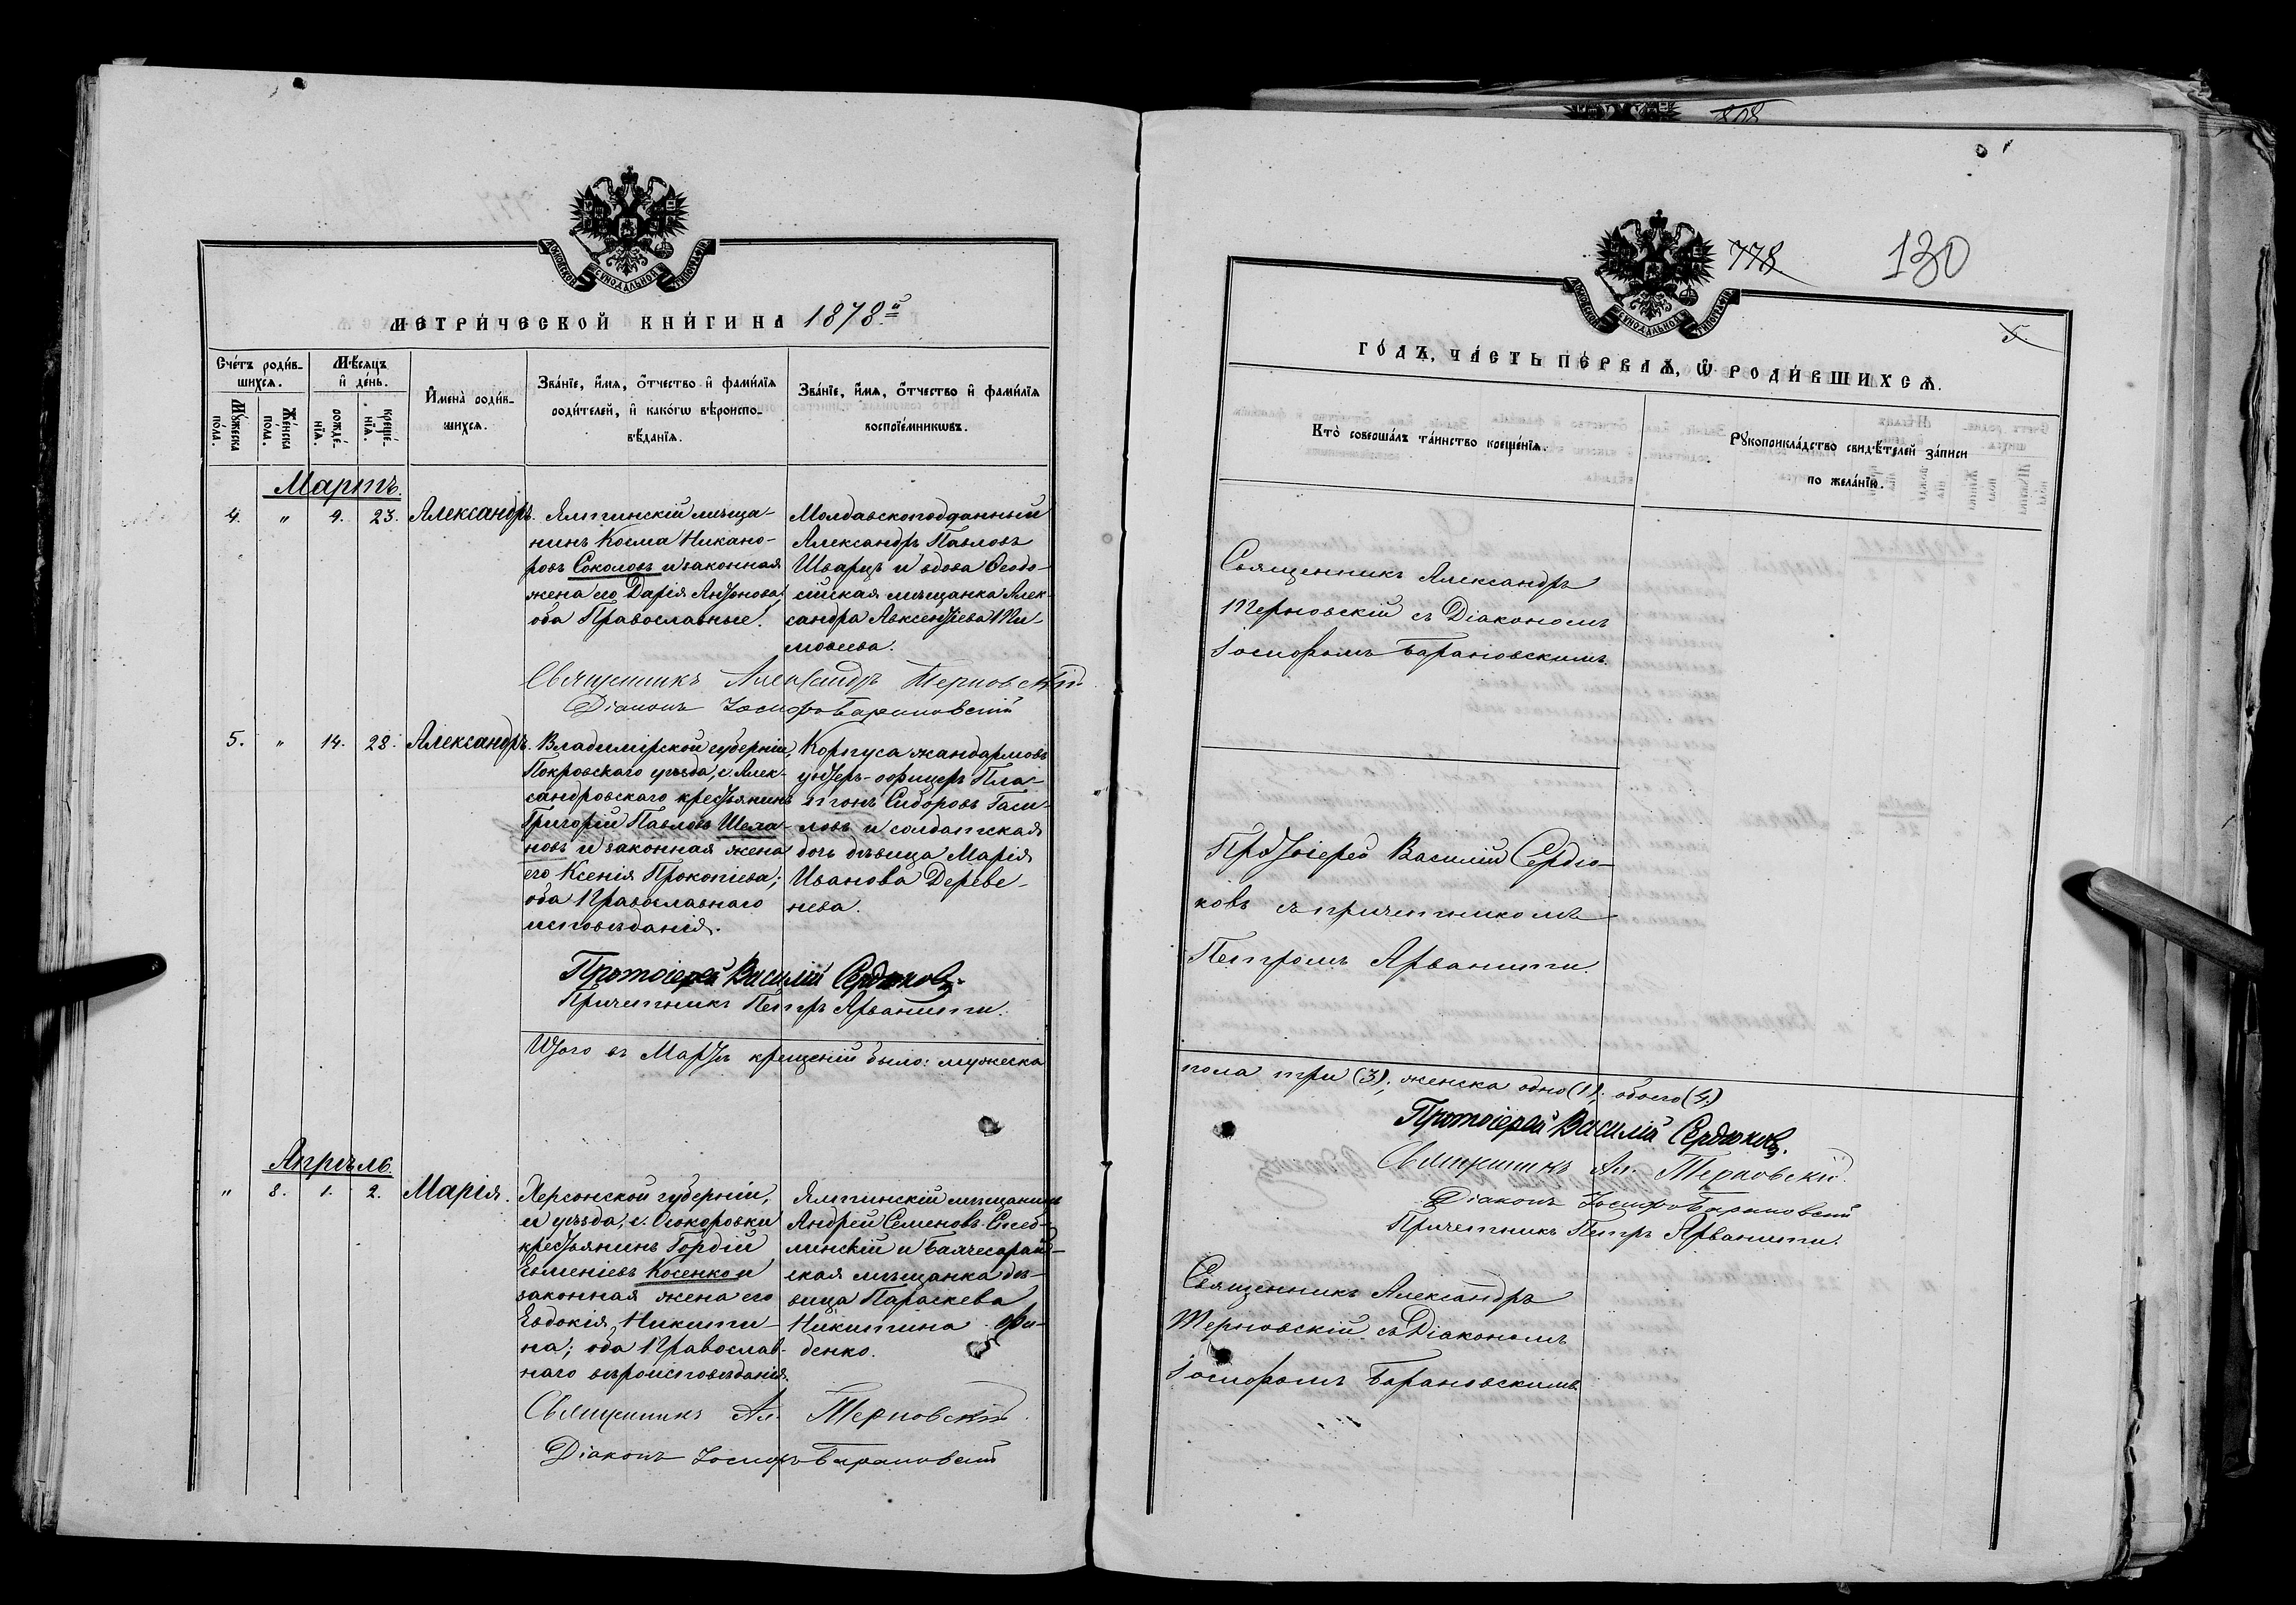 МЕТРИ́ЧЕСКОЙ КНИ́ГИ НА 1878й
Сче́тъ роди́в-
шихсѧ.
Мѣ́сѧцъ
и҆ де́нь.
Мꙋ́жеска
пола.
Же́нска
пола.
рожде́-
нїѧ.
креще́-
нїѧ.
И҆мена̀ роди́в-
шихсѧ.
Зва́нїе, и҆́мѧ, ѻ҆́тчество и҆ фами́лїѧ
роди́телей, и҆ како́гѡ вѣроиспо-
вѣ́данїѧ.
Зва́нїе, и҆́мѧ, ѻ҆́тчество и҆ фами́лїѧ
воспрїе́мникѡвъ.
Мартъ.
4. " 9. 23. Александръ.
Ялтинскій мѣща-
нинъ Косма Никано-
ровъ Соколовъ и законная
жена его Дарія Антонова;
оба Православные.
Молдавскоподданный
Александръ Павловъ
Шварцъ и вдова Ѳеодо-
сійская мѣщанка Алек-
сандра Авксентіева Ти-
моѳеева.
Священникъ Александръ Терновскій
Діаконъ Іосифъ Барановскій
5. " 14. 28. Александръ.
Владимірской губерніи,
Покровскаго уѣзда, с. Алек-
сандровскаго крестьянинъ
Григорій Павловъ Шела-
новъ и законная жена
его Ксенія Прокопіева;
оба Православнаго
исповѣданія.
Корпуса жандармовъ
унтеръ-офицеръ Пла-
тонъ Сидоровъ Гаси-
ловъ и солдатская
дочь дѣвица Марія
Иванова Дереве-
нева.
Протоіерей Василій Сердюковъ.
Причетникъ Петръ Арванити.
Итого въ Мартѣ крещеній было: мужеска
Апрѣль.
" 8. 1. 2. Марія.
Херсонской губерніи,
и уѣзда, с. Осокоровки
крестьянинъ Гордій
Евменіевъ Косенко и
законная жена его
Евдокія Никити-
на; оба Православ-
наго вѣроисповѣданія.
Ялтинскій мѣщанинъ
Андрей Семеновъ
и Бахчесарай-
ская мѣщанка дѣ-
вица Параскева
Никитина Фи-
денко.
Священникъ Ал. Терновскій
Діаконъ Іосифъ Барановскій
778 130
ГО́ДЪ, ЧА́СТЬ ПЕ́РВАѦ, Ѡ҆ РОДИ́ВШИХСѦ.
Кто̀ соверша́лъ та́инство креще́нїѧ.
Рꙋкоприкла́дство свидѣ́телей за́писи
по жела́нїю.
Священникъ Александръ
Терновскій съ Діакономъ
Іосифомъ Барановскимъ.
Протоіерей Василій Сердю-
ковъ съ причетникомъ
Петромъ Арванити.
пола три (3); женска одно (1); обоего (4.)
Протоіерей Василій Сердюковъ.
Священникъ Ал. Терновскій
Діаконъ Іосифъ Барановскій
Причетникъ Петръ Арванити.
Священникъ Александръ
Терновскій съ Діакономъ
Іосифомъ Барановскимъ